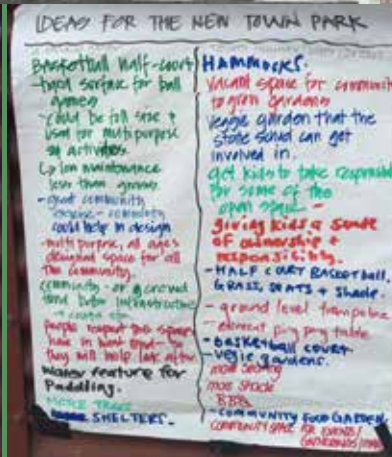 IDEAS FOR THE NEW TOWN PARK
Basketball half-court
-hard surface for ball
games
-could be full size &
used for multi purpose
activities
↳ low maintenance
less than grass
-great community
exercise - community
could help in design
-multi purpose, all ages
designed space for all
the community.
community -
people respect the space
have in
they will help look after
Water feature for
Paddling.
MORE TREES
SHELTERS.
HAMMOCKS.
vacant space for community
to grow gardens
veggie garden that the
can get
involved in.
get kids to take
for some of the
open space -
giving kids a sense
of ownership &
responsibility.
-HALF COURT BASKETBALL.
GRASS, SEATS & Shade.
- ground level trampoline
- cement ping pong table
-basketball court
-vegie gardens.
more seating
more shade
BBQ
-COMMUNITY FOOD GARDEN.
COMMUNITY SPACE FOR EVENTS/